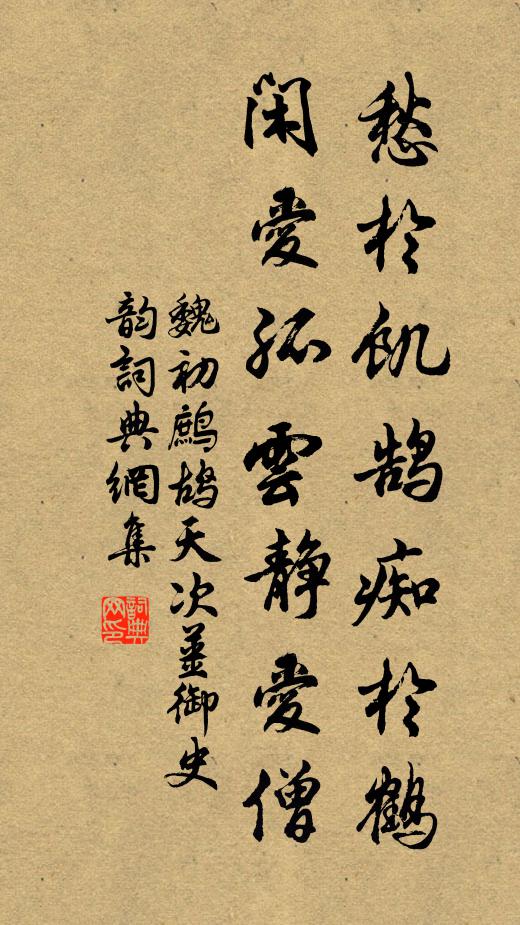 愁於飢鵠痴於鶴
閑愛孤雲静愛僧
魏初鷓鴣天次姜御史
韵詞典網集
詞典網印